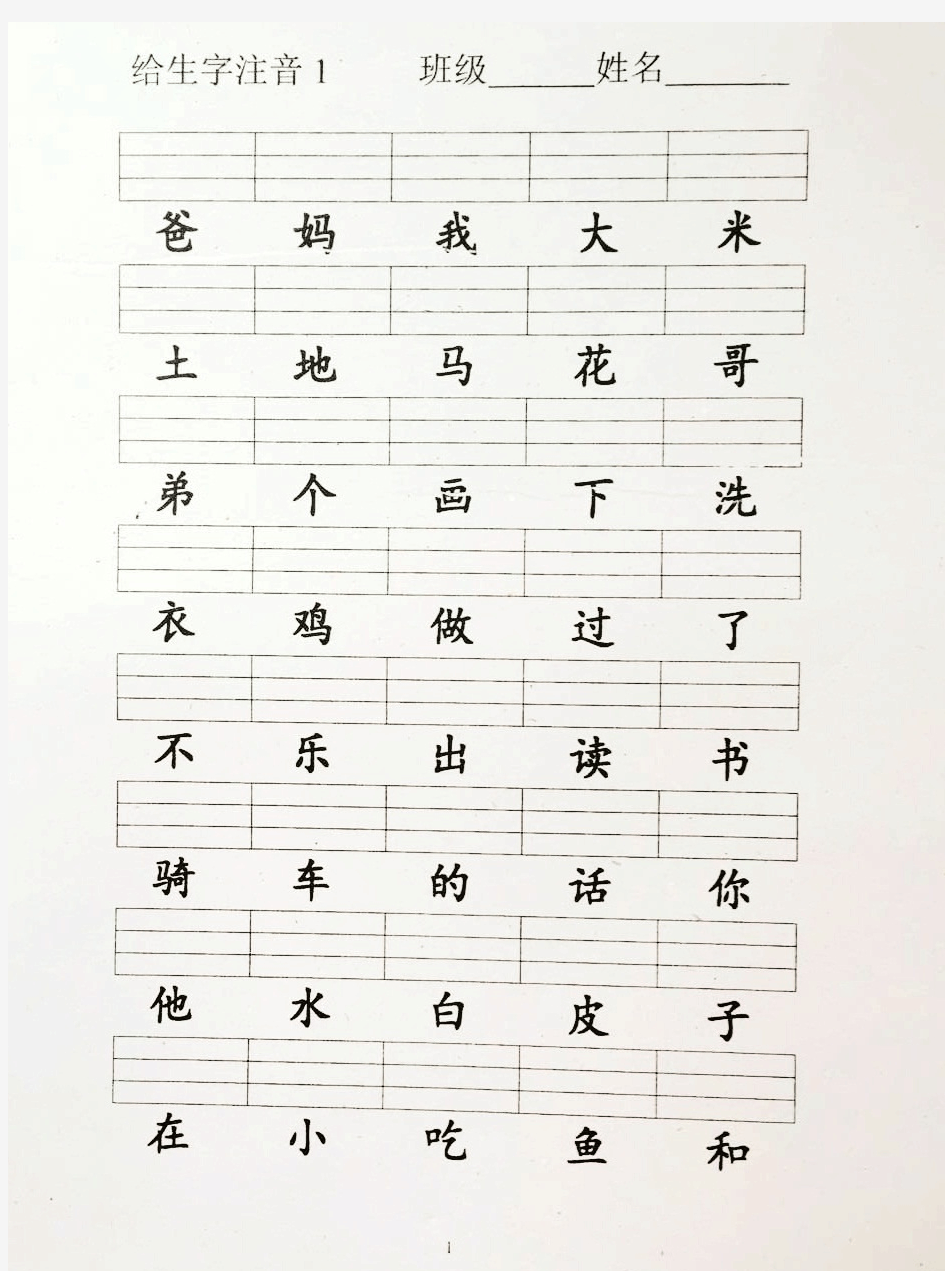 给生字注音1 班级______姓名_______
爸 妈 我 大 米
土 地 马 花 哥
弟 个 画 下 洗
衣 鸡 做 过 了
不 乐 出 读 书
骑 车 的 话 你
他 水 白 皮 子
在 小 吃 鱼 和
1